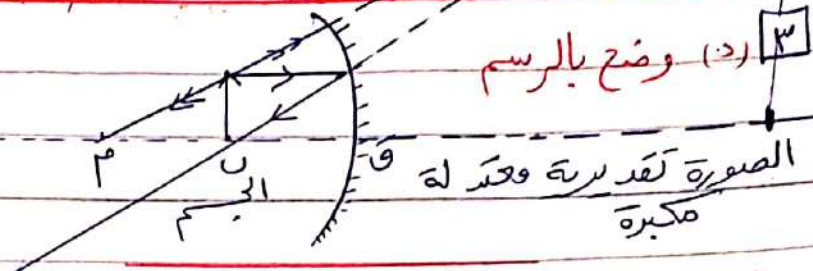 ٣ (د) وضح بالرسم
م
ن
ق
الجسم
الصورة تقديرية معتدلة
مكبرة